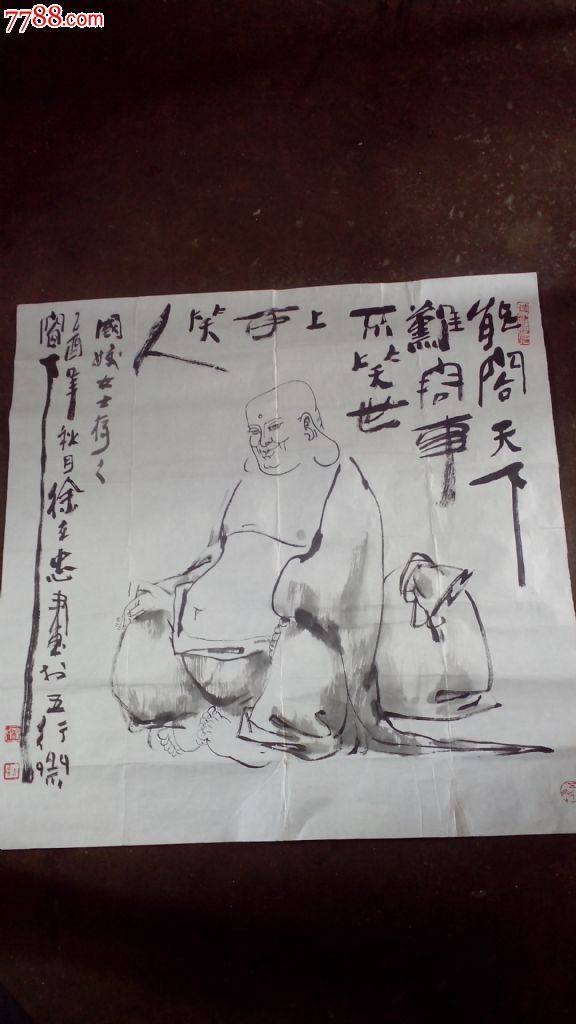 7788.com
能容天下
難容事
不笑世
上
可
笑
人
國姣女士存之
乙酉年秋月徐忠畫於五行
窗下